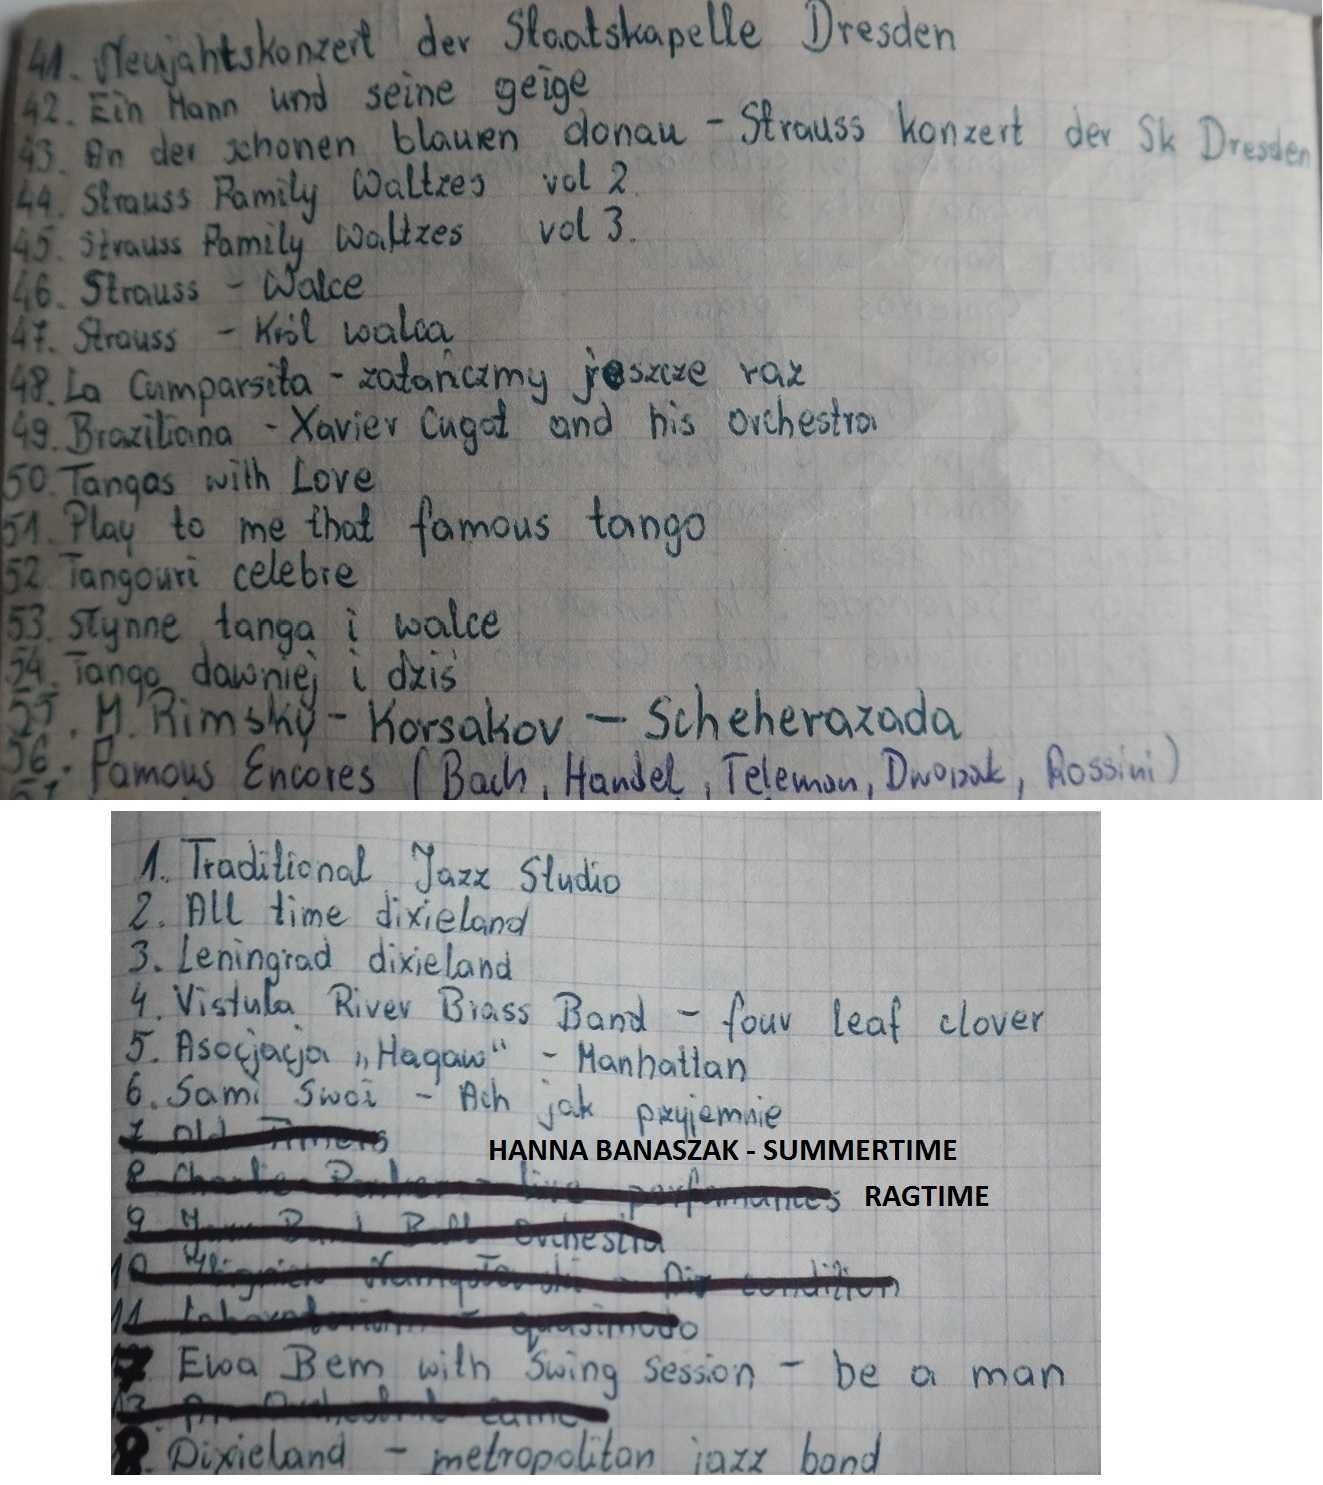 41. Neujahtskonzert der Staatskapelle Dresden
42. Ein Mann und seine geige
43. An der schonen blauen donau - Strauss konzert der Sk Dresden
44. Strauss Family Waltzes vol 2.
45. Strauss Family Waltzes vol 3.
46. Strauss - Walce
47. Strauss - Król walca
48. La Cumparsita - zatańczmy jeszcze raz
49. Braziliana - Xavier Cugat and his orchestra
50. Tangos with Love
51. Play to me that famous tango
52. Tangouri celebre
53. Słynne tanga i walce
54. Tango dawniej i dziś
55. M. Rimsky - Korsakov - Scheherazada
56. Famous Encores (Bach, Handel, Teleman, Dworzak, Rossini)
57
1. Traditional Jazz Studio
2. All time dixieland
3. Leningrad dixieland
4. Vistula River Brass Band - four leaf clover
5. Asocjacja „Hagaw“ - Manhattan
6. Sami Swoi - Ach jak przyjemnie
7 Old Timers
HANNA BANASZAK - SUMMERTIME
8 Charlie Parker - live perfomances
RAGTIME
9 Ball Orchestra
10 Zbigniew Namysłowski - Air condition
11 Laboratorium - quasimodo
7 Ewa Bem with Swing Session - be a man
8. Dixieland - metropolitan jazz band